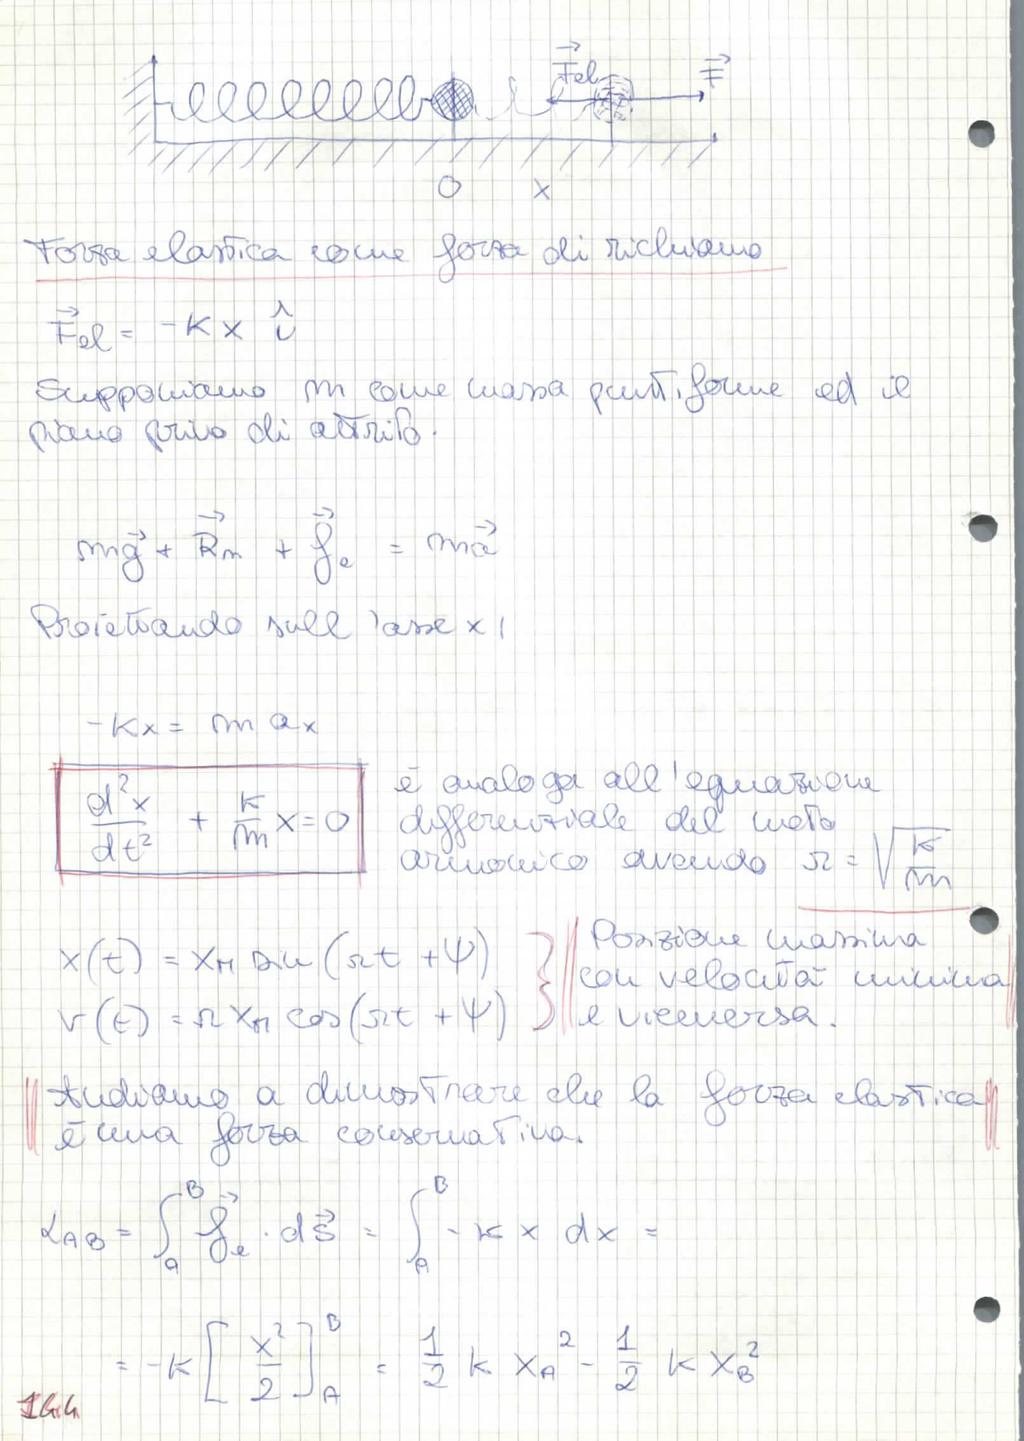 F⃗el F⃗
O x
Forza elastica come forza di richiamo
F⃗el = -K x î
Supponiamo m come massa puntiforme ed il
piano privo di attrito.
mg⃗ + R⃗n + f⃗e = ma⃗
Proiettando sull'asse x,
-Kx = m ax
d²x/dt² + k/m x = 0
è analoga all'equazione
differenziale del moto
armonico avendo Ω = √(k/m)
x(t) = xM sin (Ωt + ψ)
v(t) = Ω xM cos (Ωt + ψ)
Posizione massima
con velocità minima
e viceversa.
Andiamo a dimostrare che la forza elastica
è una forza conservativa.
LAB = ∫_A^B f⃗e · ds⃗ = ∫_A^B - k x dx =
= -k [x²/2]_A^B = 1/2 k xA² - 1/2 k xB²